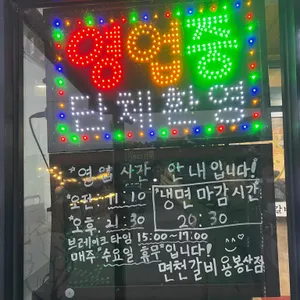 영업중
단체환영
*영업시간 안내입니다!
*오전: 11:10
오후: 21:30
*냉면 마감시간
20:30
브레이크타임 15:00~17:00
매주 "수요일 휴무"입니다!
면천갈비 용봉산점